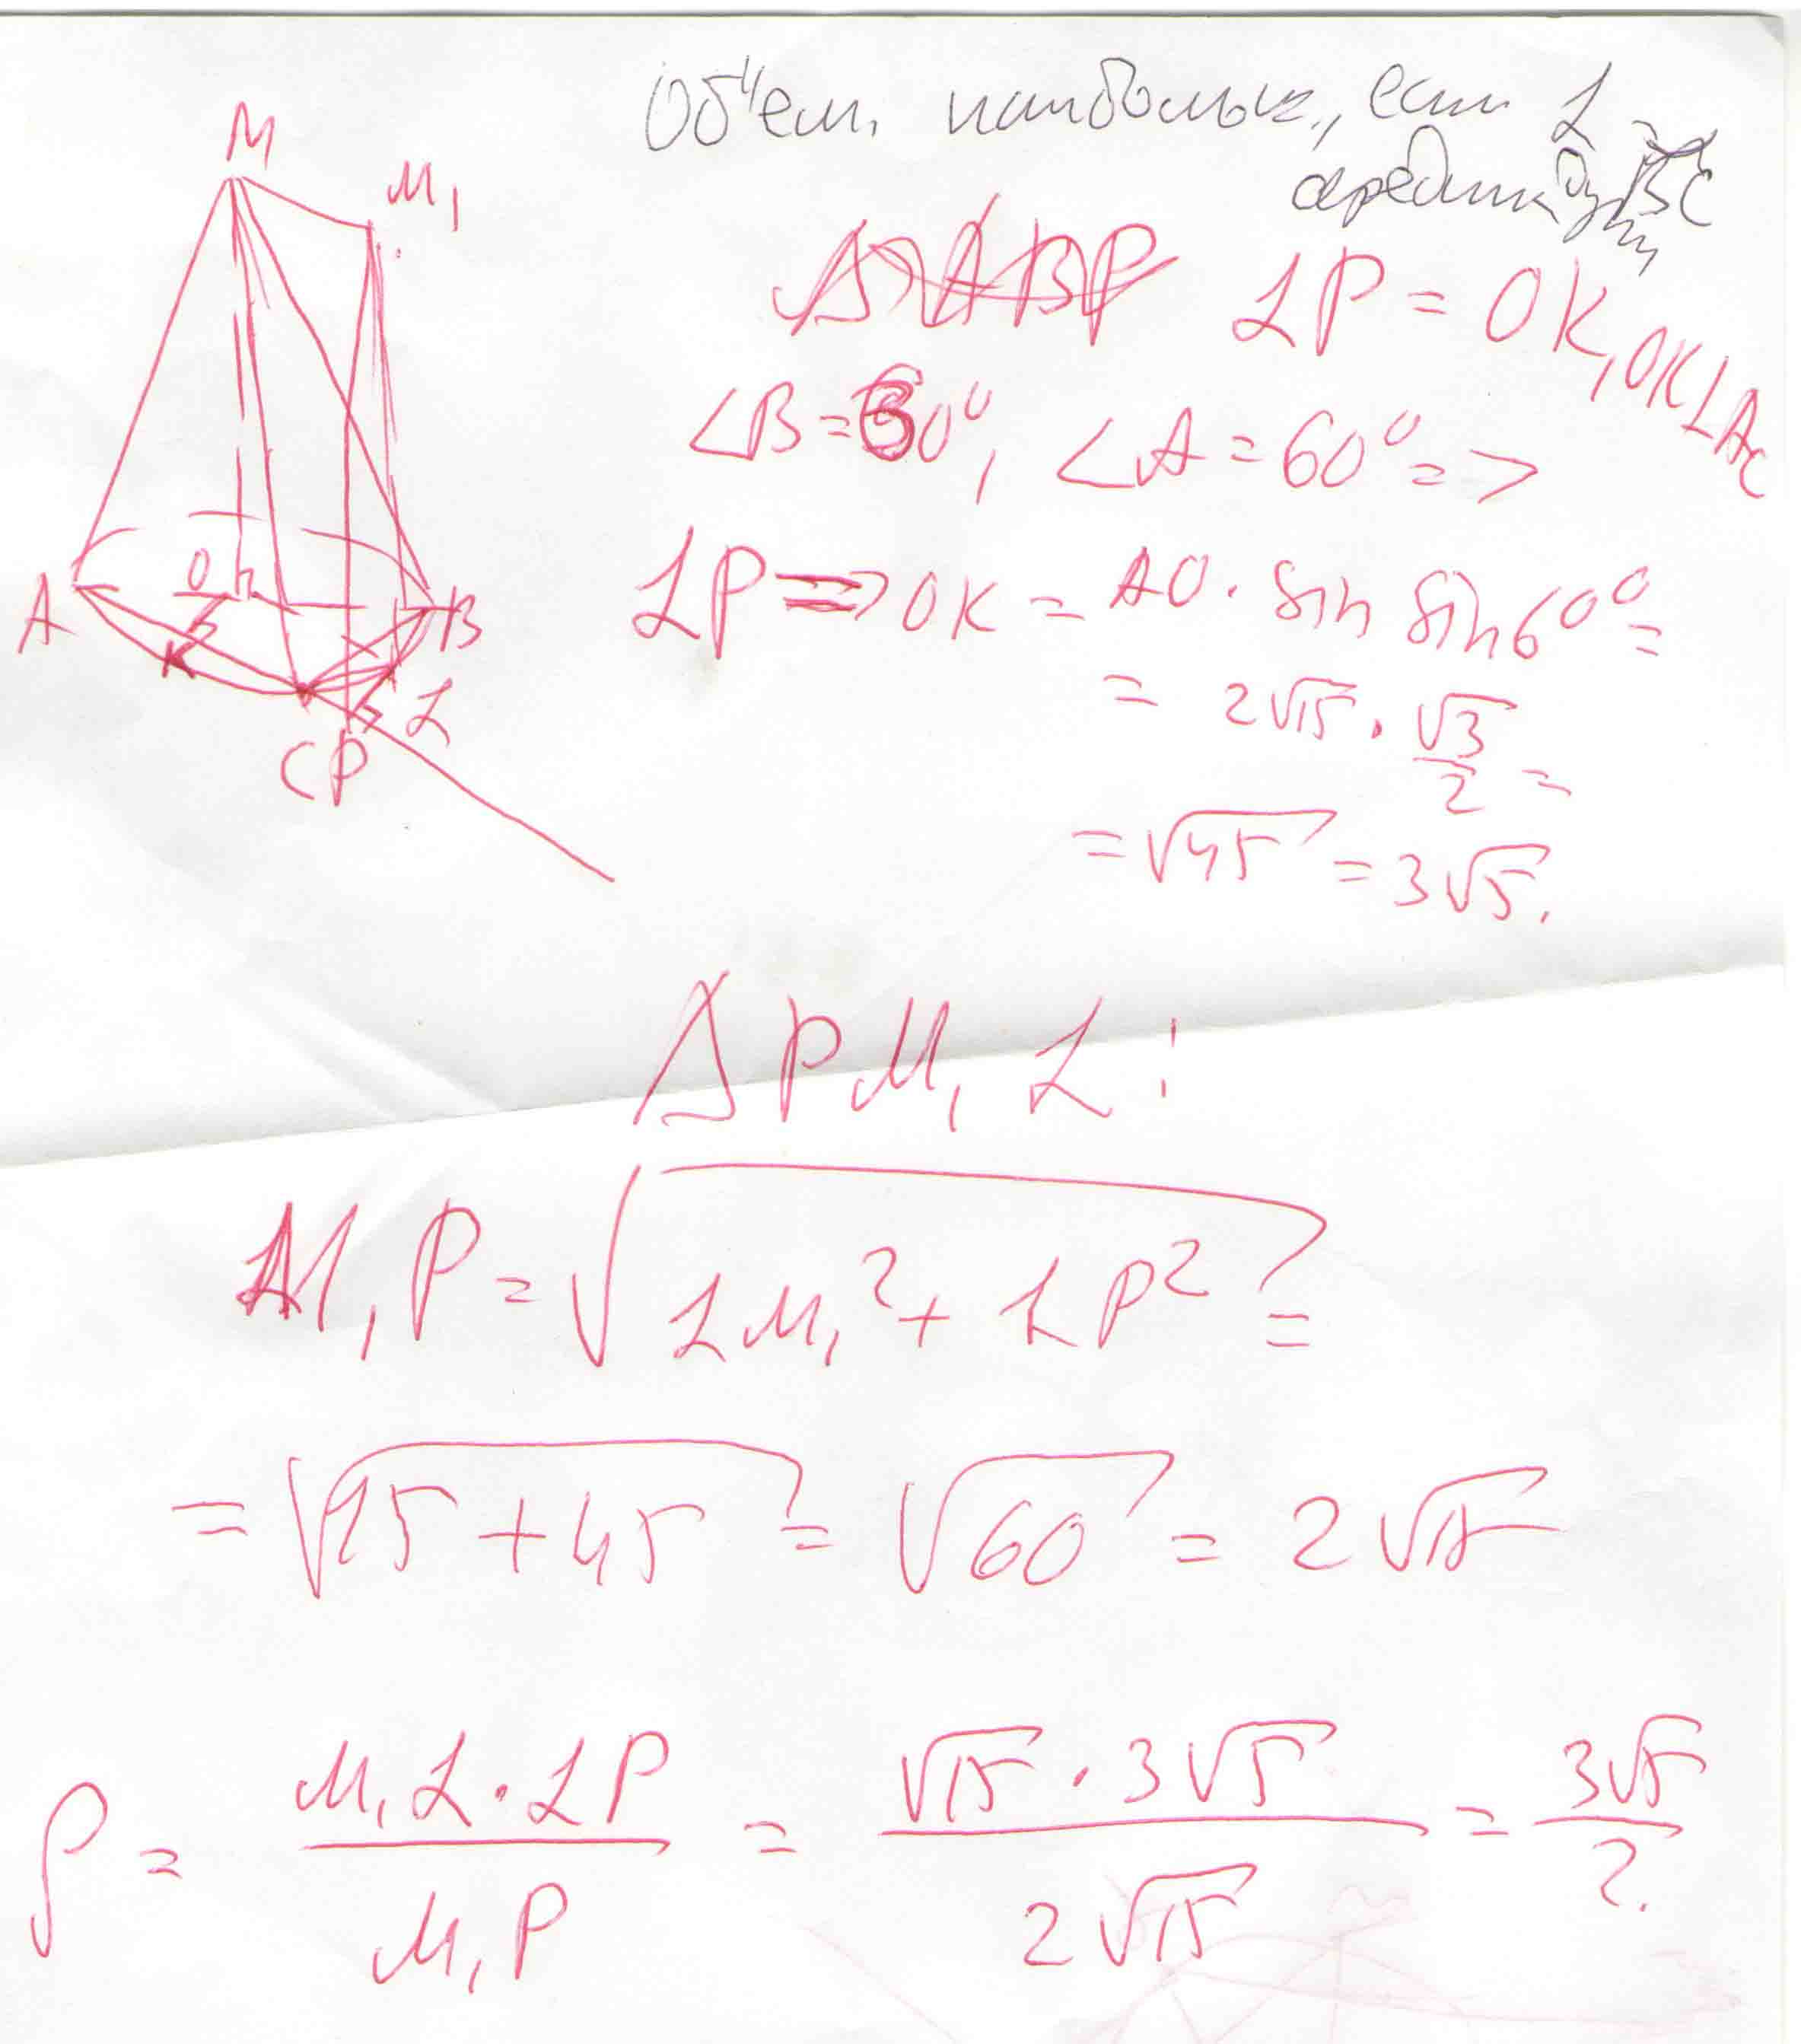 Объем. наибольш., если L
середина дуги BC
M
M₁
A
O h
B
K
L
C P
LP = OK, OK⊥AC
∠B=30°, ∠A = 60° =>
LP => OK = AO · sin sin60° =
= 2√15 · √3/2 =
= √45 = 3√5.
Δ PM₁L:
M₁P = √(LM₁² + LP²) =
= √(15 + 45) = √60 = 2√15
ρ = (M₁L · LP)/(M₁P) = (√15 · 3√5)/(2√15) = 3√5/2.